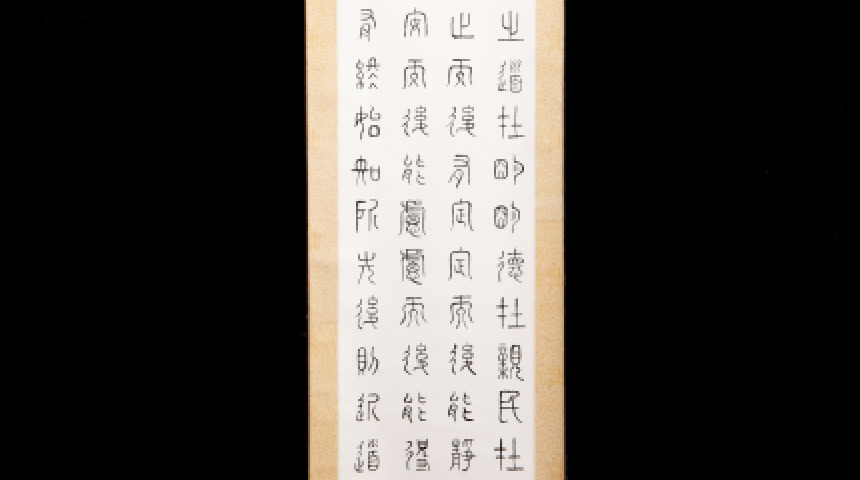 之道在明明德在親民在
止而後有定定而後能靜
安而後能慮慮而後能得
有終始知所先後則近道